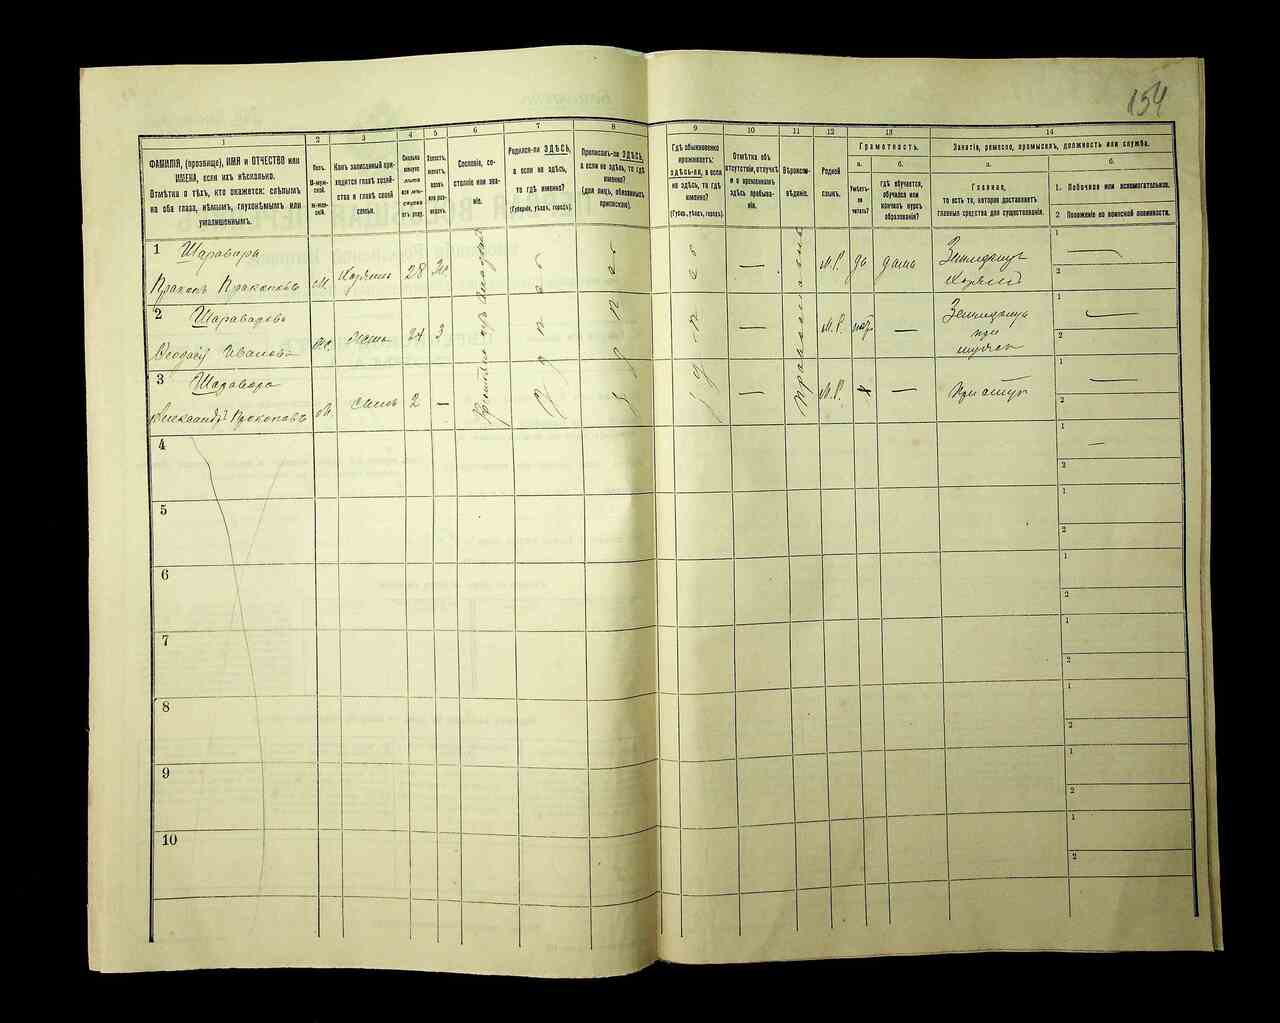 154
1
2
3
4
5
6
7
8
9
10
11
12
13
14
ФАМИЛІЯ, (прозвище), ИМЯ и ОТЧЕСТВО или
ИМЕНА, если ихъ нѣсколько.
Отмѣтка о тѣхъ, кто окажется: слѣпымъ
на оба глаза, нѣмымъ, глухонѣмымъ или
умалишеннымъ.
Полъ.
М-муж-
ской.
Ж-жен-
скій.
Какъ записанный при-
ходится главѣ хозяй-
ства и главѣ своей
семьи.
Сколько
минуло
лѣтъ
или мѣ-
сяцевъ
отъ роду.
Холостъ,
женатъ,
вдовъ
или раз-
веденъ.
Сословіе, со-
стояніе или зва-
ніе.
Родился-ли ЗДѢСЬ,
а если не здѣсь,
то гдѣ именно?
(Губернія, уѣздъ, городъ).
Приписанъ-ли ЗДѢСЬ,
а если не здѣсь, то гдѣ
именно?
(для лицъ, обязанныхъ
припискою).
Гдѣ обыкновенно
проживаетъ:
здѣсь-ли, а если
не здѣсь, то гдѣ
именно?
(Губерн., уѣздъ, городъ).
Отмѣтка объ
отсутствіи, отлучкѣ
и о временномъ
здѣсь пребыва-
ніи.
Вѣроиспо-
вѣданіе.
Родной
языкъ.
Грамотность.
а.
Умѣетъ-
ли
читать?
б.
гдѣ обучается,
обучался или
кончилъ курсъ
образованія?
Занятіе, ремесло, промыселъ, должность или служба.
а.
Главное,
то есть то, которое доставляетъ
главныя средства для существованія.
б.
1. Побочное или вспомогательное.
2 Положеніе по воинской повинности.
1 Шараваръ
Прокопъ Прокоповъ м. Хозяинъ 28 М.Р. да дома Земледѣлецъ Хозяинъ
1
2
2 Шараварова
Ѳеодосія Иванова жена 24 3 М.Р. нѣтъ — Земледѣлецъ при мужѣ
1
2
3 Шаравара
Александръ Прокоповъ м. сынъ 2 — М.Р. — При отцѣ
1
2
Православный
4
1
2
5
1
2
6
1
2
7
1
2
8
1
2
9
1
2
10
1
2